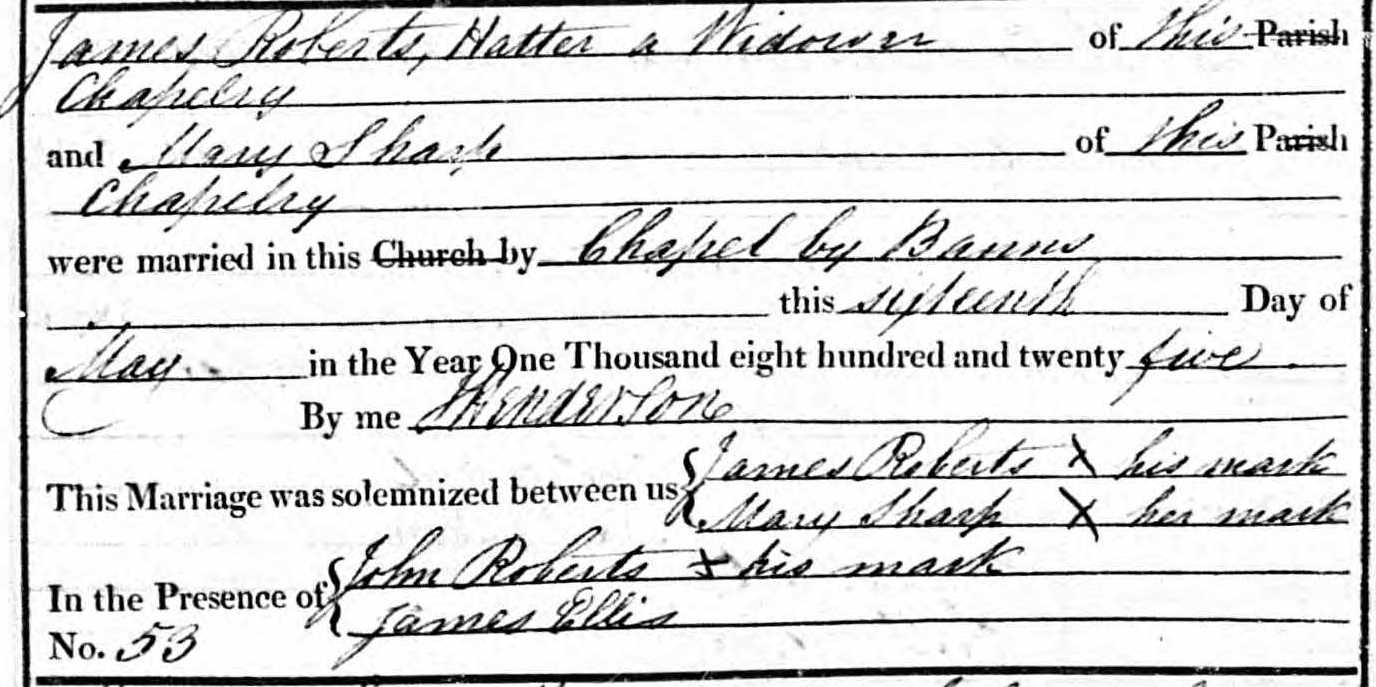 James Roberts, Hatter a Widower of this Parish
Chapelry
and Mary Sharp of this Parish
Chapelry
were married in this Church by Chapel by Banns
this sixteenth Day of
May in the Year One Thousand eight hundred and twenty five
By me Henderson
This Marriage was solemnized between us { James Roberts X his mark
Mary Sharp X her mark
In the Presence of { John Roberts X his mark
James Ellis
No. 53